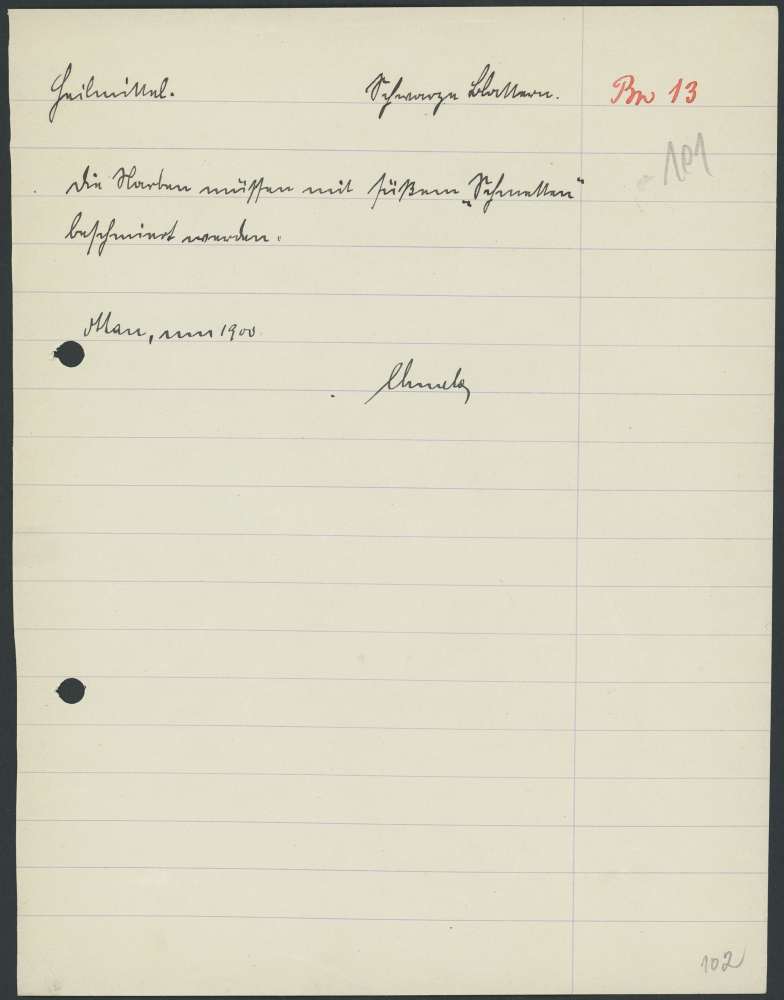 Heilmittel. Schwarze Blattern. Br 13
101
Die Narben müssen mit süßem „Schmetten“
beschmiert werden.
um 1900
102